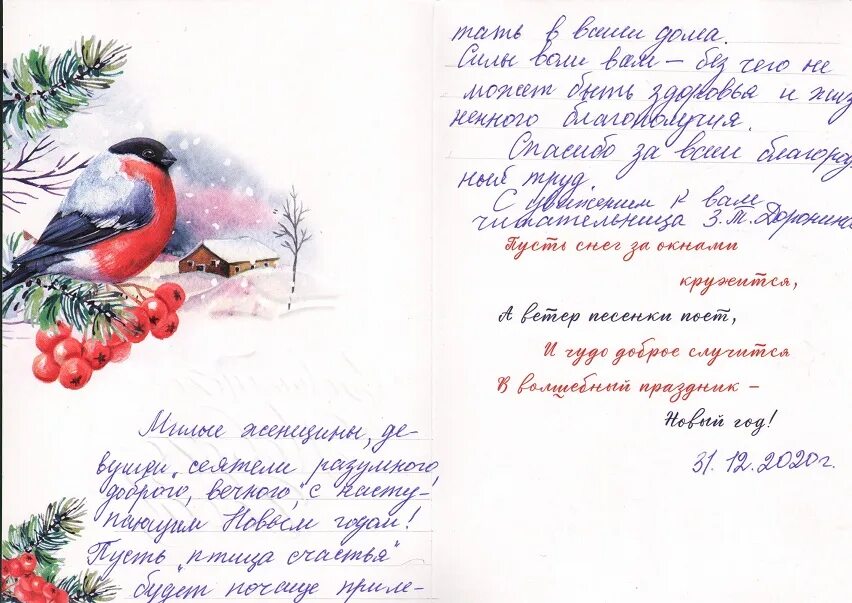 Милые женщины, де-
вушки, "сеятели разумного,
доброго, вечного", с насту-
пающим Новым годом!
Пусть "птица счастья"
будет почаще приле-
тать в ваши дома.
Силы воли вам – без чего не
может быть здоровья и жиз
ненного благополучия.
Спасибо за ваш благород
ный труд.
С уважением к вам
читательница З.М. Доронина
Пусть снег за окнами
кружится,
А ветер песенки поет,
И чудо доброе случится
В волшебный праздник –
Новый год!
31.12.2020г.